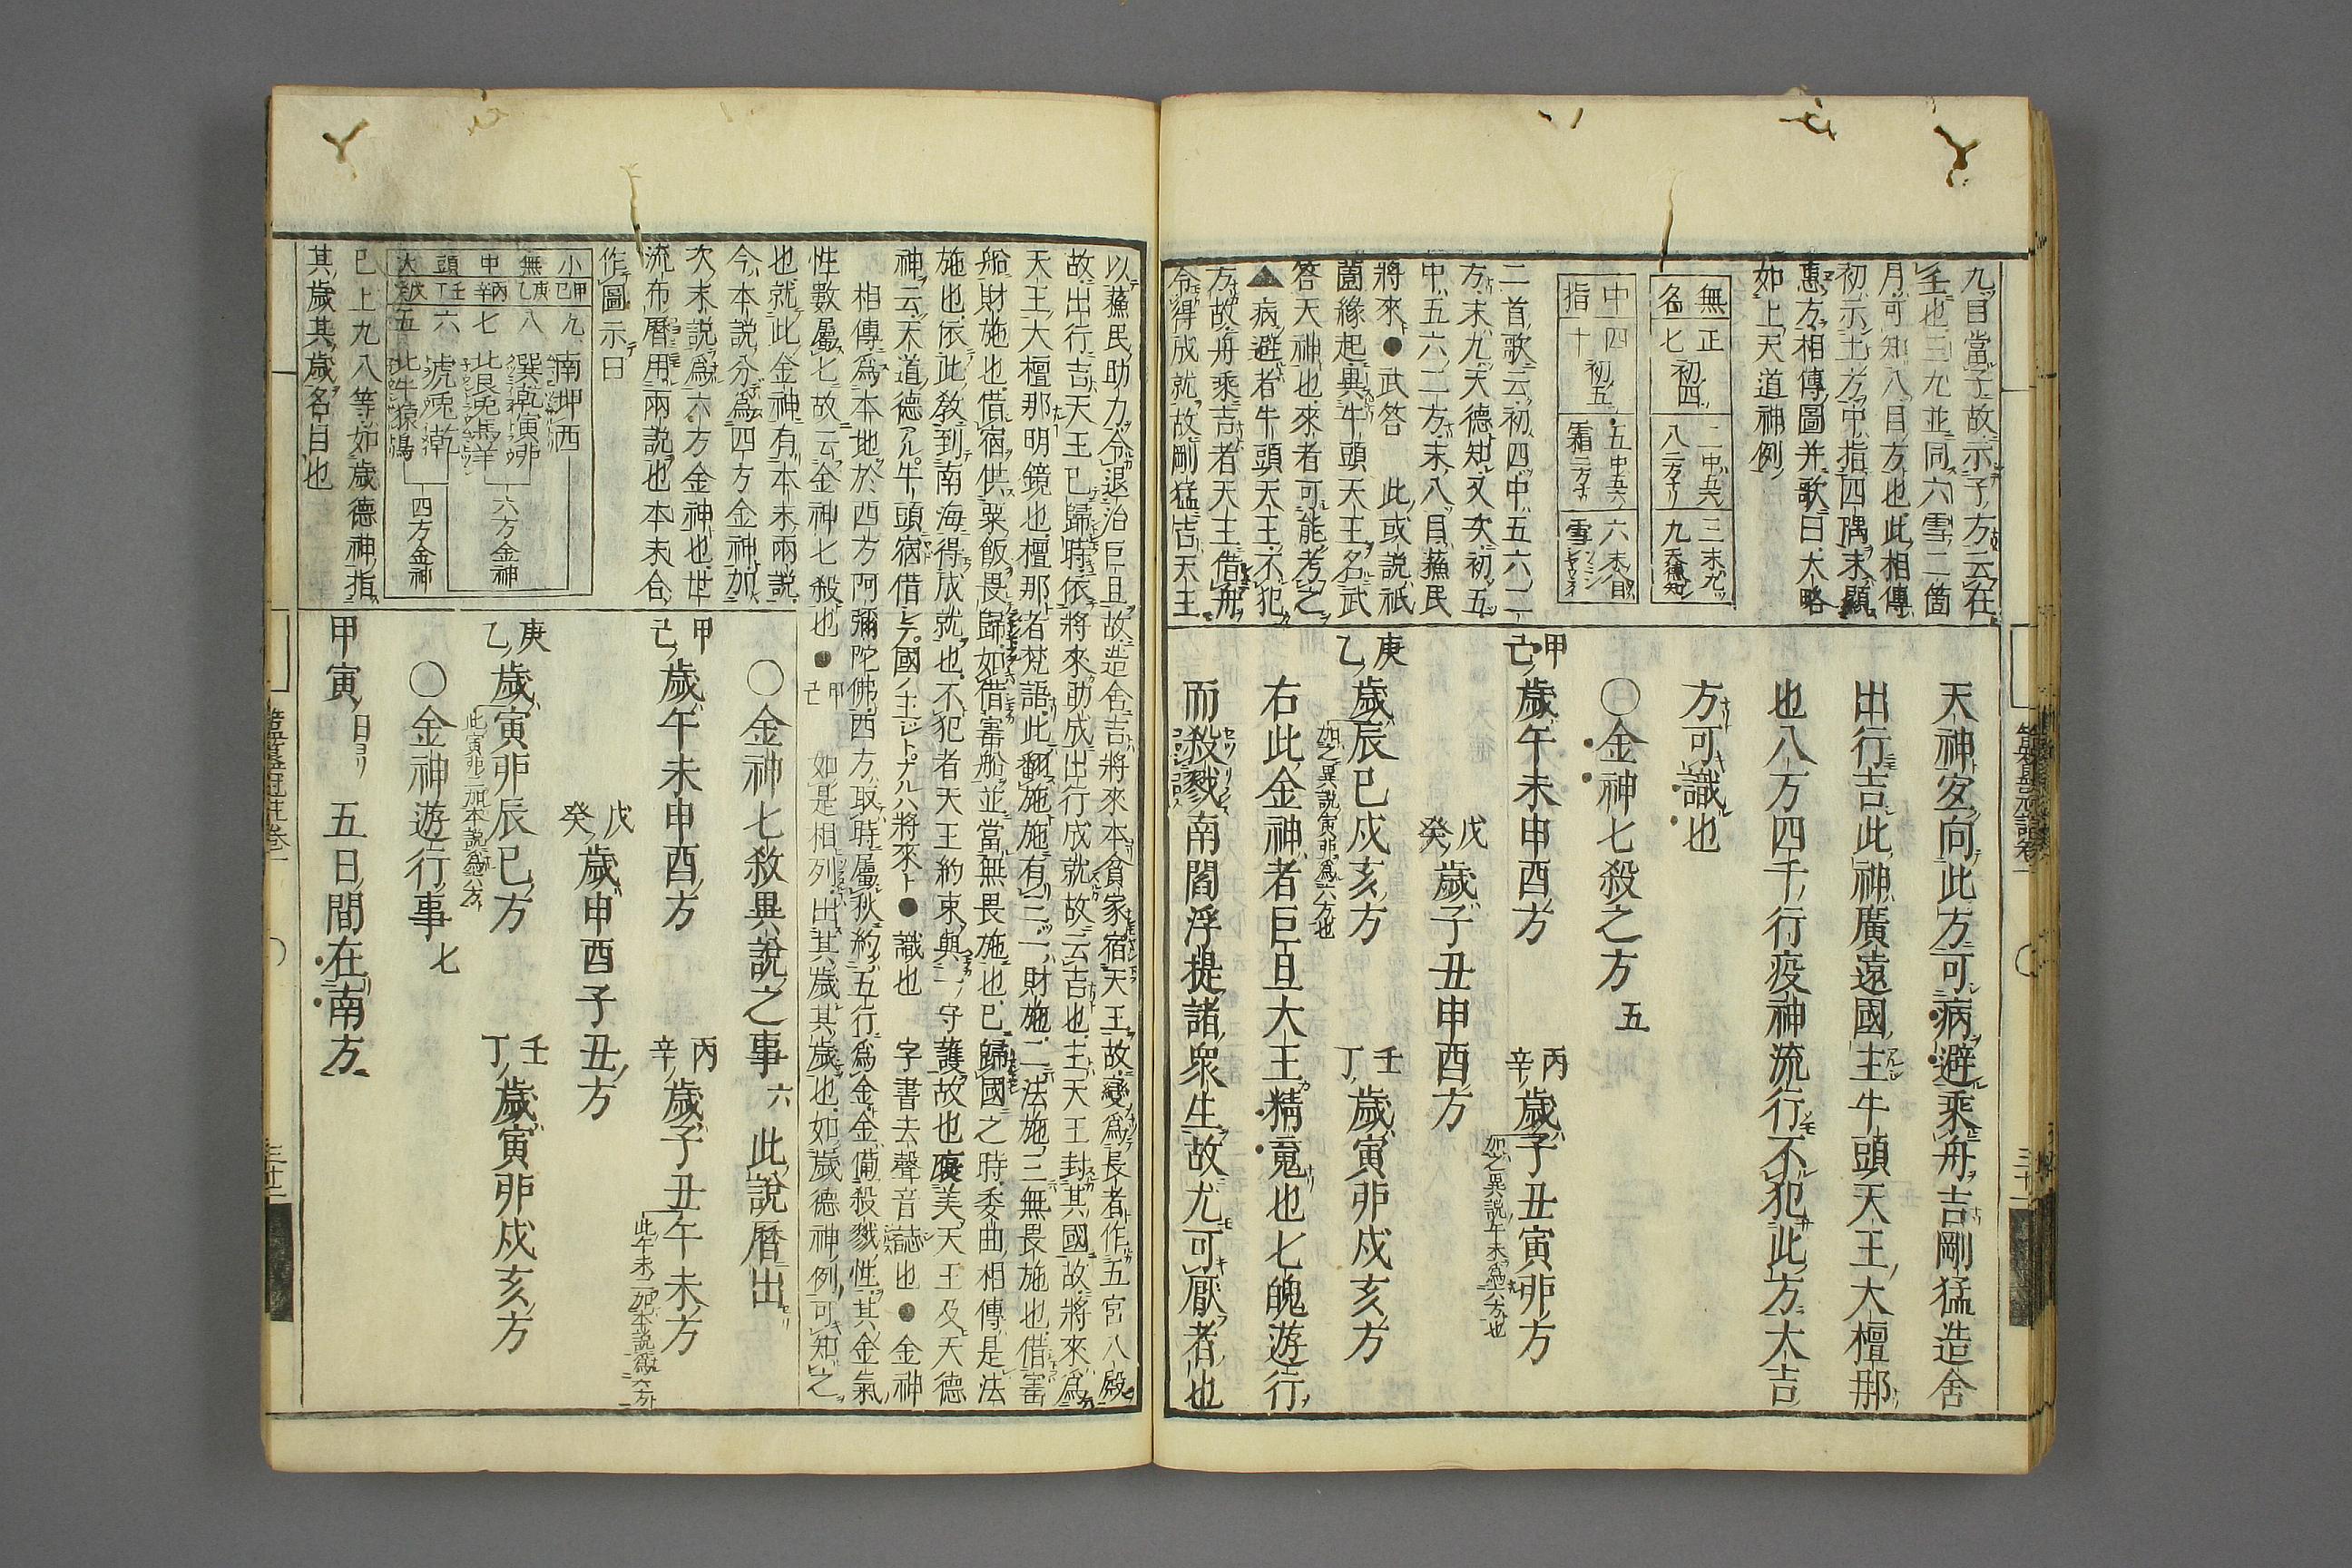 九目當子故示子方云在
至也三九並同六雪二箇
月可知八目方也此相傳
初示土方中指四隅末顯
惠方相傳圖并歌曰大略
如上天道神例
無名
正七 初四
二八 中五六二方ナリ
三九 末九ッ天德知
中指
四十 初五
五霜 中五六二方ナリ
六雪 末八目
二首歌云初四中五六二
方末九天德知又次初五
中五六二方末八目蘓民
將來●武答 此或説祇
薗緣起與牛頭天王名武
答天神也來者可能考之
▲病避者牛頭天王不犯
方故舟乘吉者天王借舟
令得成就故剛猛吉天王
天神安向此方可病避乘舟吉剛猛造舍
出行吉此神廣遠國主牛頭天王大檀那
也八万四千行疫神流行不犯此方大吉
方可識也
○金神七殺之方 五
甲己歲午未申酉方 丙辛歲子丑寅卯方
如之異説午未爲六方也
戊癸歲子丑申酉方
庚乙歲辰巳戌亥方 壬丁歲寅卯戌亥方
如之異説寅卯爲六方也
右此金神者巨旦大王精䰟也七魄遊行
而殺戮南閻浮提諸衆生故尤可厭者也
以蘓民助力令退治巨旦故造舍吉將來本貧家宿天王故變爲長者作五宮八殿
故出行吉天王已歸時依將來助成出行成就故云吉也主天王封其國故將來爲
天王大檀那明鏡也檀那者梵語此翻施施有三一財施二法施三無畏施也借審
船財施也借宿供粟飯畏歸如借審船並當無畏施也已歸國之時委曲相傳是法
施也依此教到南海得成就也不犯者天王約束與一守護故也哀美天王及天德
神云天道德アル牛頭宿借シテ國ノ主トナルハ將來ト●識也 字書去聲音誌也●金神
相傳爲本地於西方阿彌陀佛西方取時屬秋約五行爲金金備殺戮性其金氣
性數屬七故云金神七殺也●甲己 如是相列出其歲其歲也如歲德神例可知之
也就此金神有本末兩說
今本說分爲四方金神加
次末說爲六方金神也世
流布曆用兩說也本末合
作圖示曰
小 甲己 九 南坤西
無 庚乙 八 巽乾寅卯
中 丙辛 七 北艮兎馬羊
頭 壬丁 六 虎兎乾
大 戊癸 五 北牛猿鳥
六方金神
四方金神
已上九八等如歲德神指
其歲其歲名目也
○金神七殺異說之事 六 此說曆出
甲己歲午未申酉方 丙辛歲子丑午未方
此午未二加本說爲六方
戊癸歲申酉子丑方
庚乙歲寅卯辰巳方 壬丁歲寅卯戌亥方
此寅卯二加本說爲六方
○金神遊行事 七
甲寅日ヨリ 五日間在南方
簠簋冠註卷一